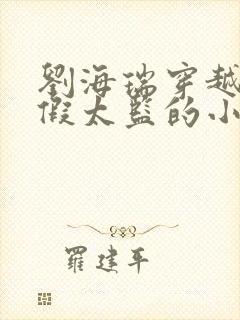 劉海瑞穿越
假太監的小
羅建平